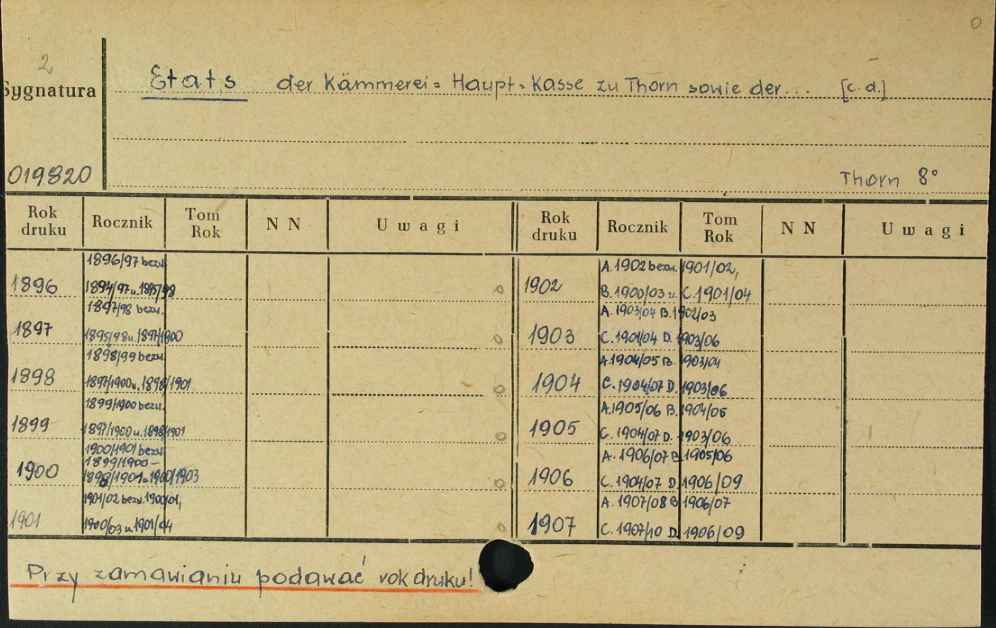 0
2
Sygnatura
Etats der Kämmerei=Haupt=Kasse zu Thorn sowie der... [c.d.]
019820
Thorn 8°
Rok druku Rocznik Tom Rok N N Uwagi Rok druku Rocznik Tom Rok N N Uwagi
1896/97 bezw.
1896
1897/98 bezw.
1897 1895/98 u. 1897/1900
1898/99 bezw.
1898 1897/1900 u. 1898/1901
1899/1900 bezw.
1899 1897/1900 u. 1898/1901
1900/1901 bezw.
1899/1900-
1900 1898/1901 u. 1900/1903
1901/02 bezw. 1900/01,
1901 1900/03 u. 1901/04
A. 1902 bezw. 1901/02,
1902 B. 1900/03 u. C. 1901/04
A. 1903/04 B. 1902/03
1903 C. 1901/04 D. 1903/06
A. 1904/05 B. 1903/04
1904 C. 1904/07 D. 1903/06
A. 1905/06 B. 1904/05
1905 C. 1904/07 D. 1903/06
A. 1906/07 B. 1905/06
1906 C. 1904/07 D. 1906/09
A. 1907/08 B. 1906/07
1907 C. 1907/10 D. 1906/09
Przy zamawianiu podawać rok druku!